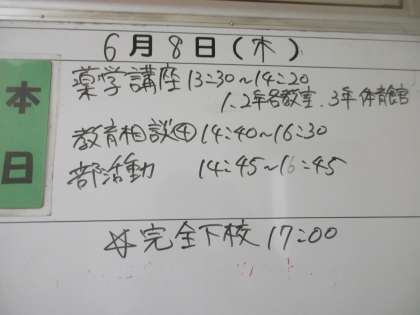 6月8日(木)
本日
薬学講座 13:30～14:20
1、2年各教室、3年体育館
教育相談④ 14:40～16:30
部活動 14:45～16:45
☆完全下校 17:00